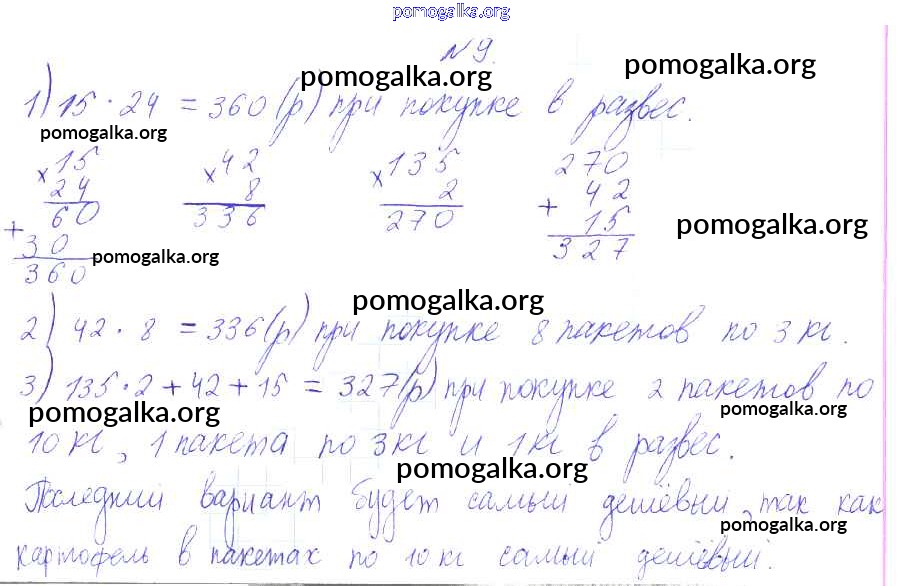 pomogalka.org
№ 9.
pomogalka.org pomogalka.org
1) 15 · 24 = 360 (р) при покупке в развес.
pomogalka.org
× 15 24 60 + 30 360
× 42 8 336
× 135 2 270
270 + 42 15 327
pomogalka.org
pomogalka.org
pomogalka.org
2) 42 · 8 = 336 (р) при покупке 8 пакетов по 3 кг.
3) 135 · 2 + 42 + 15 = 327 (р) при покупке 2 пакетов по
pomogalka.org pomogalka.org
10 кг, 1 пакета по 3 кг и 1 кг в развес.
pomogalka.org
Последний вариант будет самый дешёвый, так как
pomogalka.org
картофель в пакетах по 10 кг самый дешёвый.